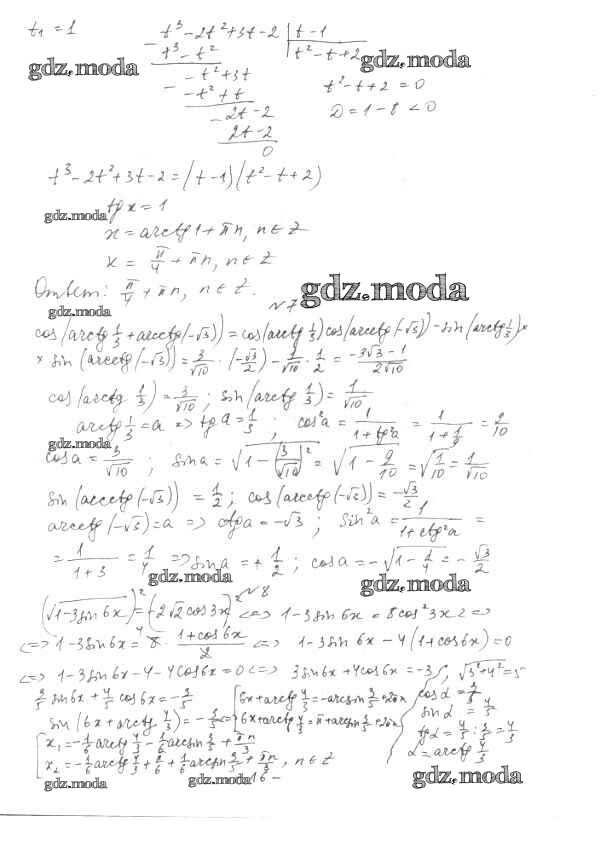 t₁ = 1
t³ - 2t² + 3t - 2 | t - 1
t³ - t²
t² - t + 2
gdz.moda
gdz.moda
- t² + 3t
t² - t + 2 = 0
- t² + t
D = 1 - 8 < 0
2t - 2
2t - 2
0
t³ - 2t² + 3t - 2 = (t - 1)(t² - t + 2)
gdz.moda
tg x = 1
x = arctg 1 + πn, n ∈ Z
x = π/4 + πn, n ∈ Z
gdz.moda
Ответ: π/4 + πn, n ∈ Z.
gdz.moda
№7
cos(arctg 1/3 + arcctg(-√3)) = cos(arctg 1/3) cos(arcctg(-√3)) - sin(arctg 1/3) ×
× sin(arcctg(-√3)) = 3/√10 · (-√3/2) - 1/√10 · 1/2 = (-3√3 - 1)/(2√10)
cos(arctg 1/3) = 3/√10 ; sin(arctg 1/3) = 1/√10
arctg 1/3 = a => tg a = 1/3 ; cos² a = 1/(1 + tg² a) = 1/(1 + 1/9) = 9/10
gdz.moda
cos a = 3/√10 ; sin a = √(1 - (3/√10)²) = √(1 - 9/10) = √(1/10) = 1/√10
sin(arcctg(-√3)) = 1/2 ; cos(arcctg(-√3)) = -√3/2
arcctg(-√3) = a => ctg a = -√3 ; sin² a = 1/(1 + ctg² a) =
= 1/(1 + 3) = 1/4 => sin a = + 1/2 ; cos a = -√(1 - 1/4) = -√3/2
gdz.moda
gdz.moda
№8
(√(1 - 3 sin 6x))² = (-2√2 cos 3x)² <=> 1 - 3 sin 6x = 8 cos² 3x <=>
<=> 1 - 3 sin 6x = 8 · (1 + cos 6x)/2 <=> 1 - 3 sin 6x - 4(1 + cos 6x) = 0
<=> 1 - 3 sin 6x - 4 - 4 cos 6x = 0 <=> 3 sin 6x + 4 cos 6x = -3 ; √(3² + 4²) = 5
3/5 sin 6x + 4/5 cos 6x = -3/5
sin(6x + arctg 4/3) = -3/5 <=>
6x + arctg 4/3 = -arcsin 3/5 + 2πn
6x + arctg 4/3 = π + arcsin 3/5 + 2πn
cos α = 3/5
sin α = 4/5
tg α = 4/5 : 3/5 = 4/3
α = arctg 4/3
x₁ = -1/6 arctg 4/3 - 1/6 arcsin 3/5 + πn/3
x₂ = -1/6 arctg 4/3 + π/6 + 1/6 arcsin 3/5 + πn/3, n ∈ Z
gdz.moda
gdz.moda
16 -
gdz.moda